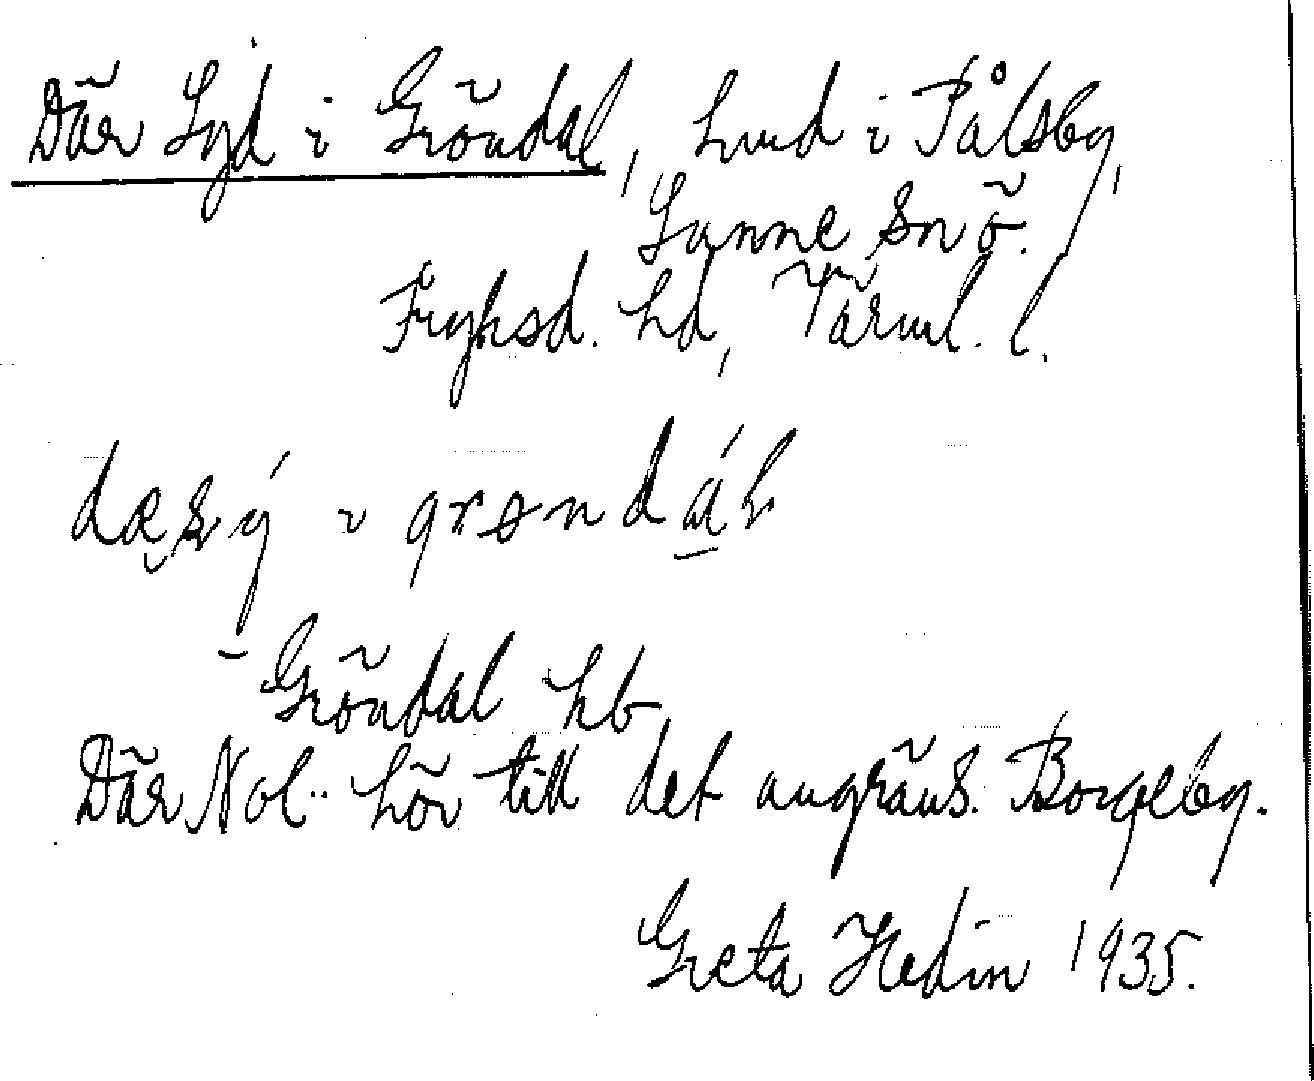 Där Syd i Gröndal, hmd i Pålsby,
Sunne sn ö.
Fryksd. hd, Värml. l.
i grøndáḷ
Gröndal hb
Där Nol.. hör till det angräns. Borgeby.
Greta Hedin 1935.